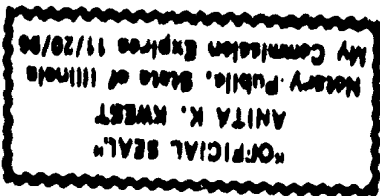 "OFFICIAL SEAL"
ANITA K. KWEST
Notary Public, State of Illinois
My Commission Expires 11/20/96